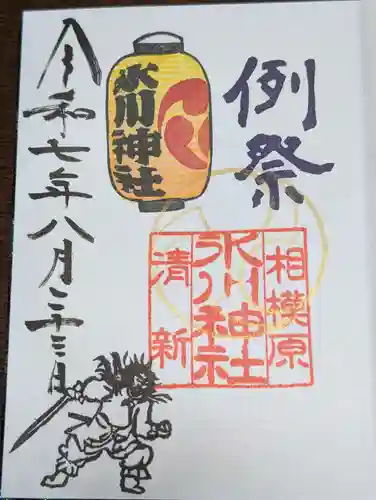 例祭
氷川神社
令和七年八月二十三日
相模原
氷川神社
清新